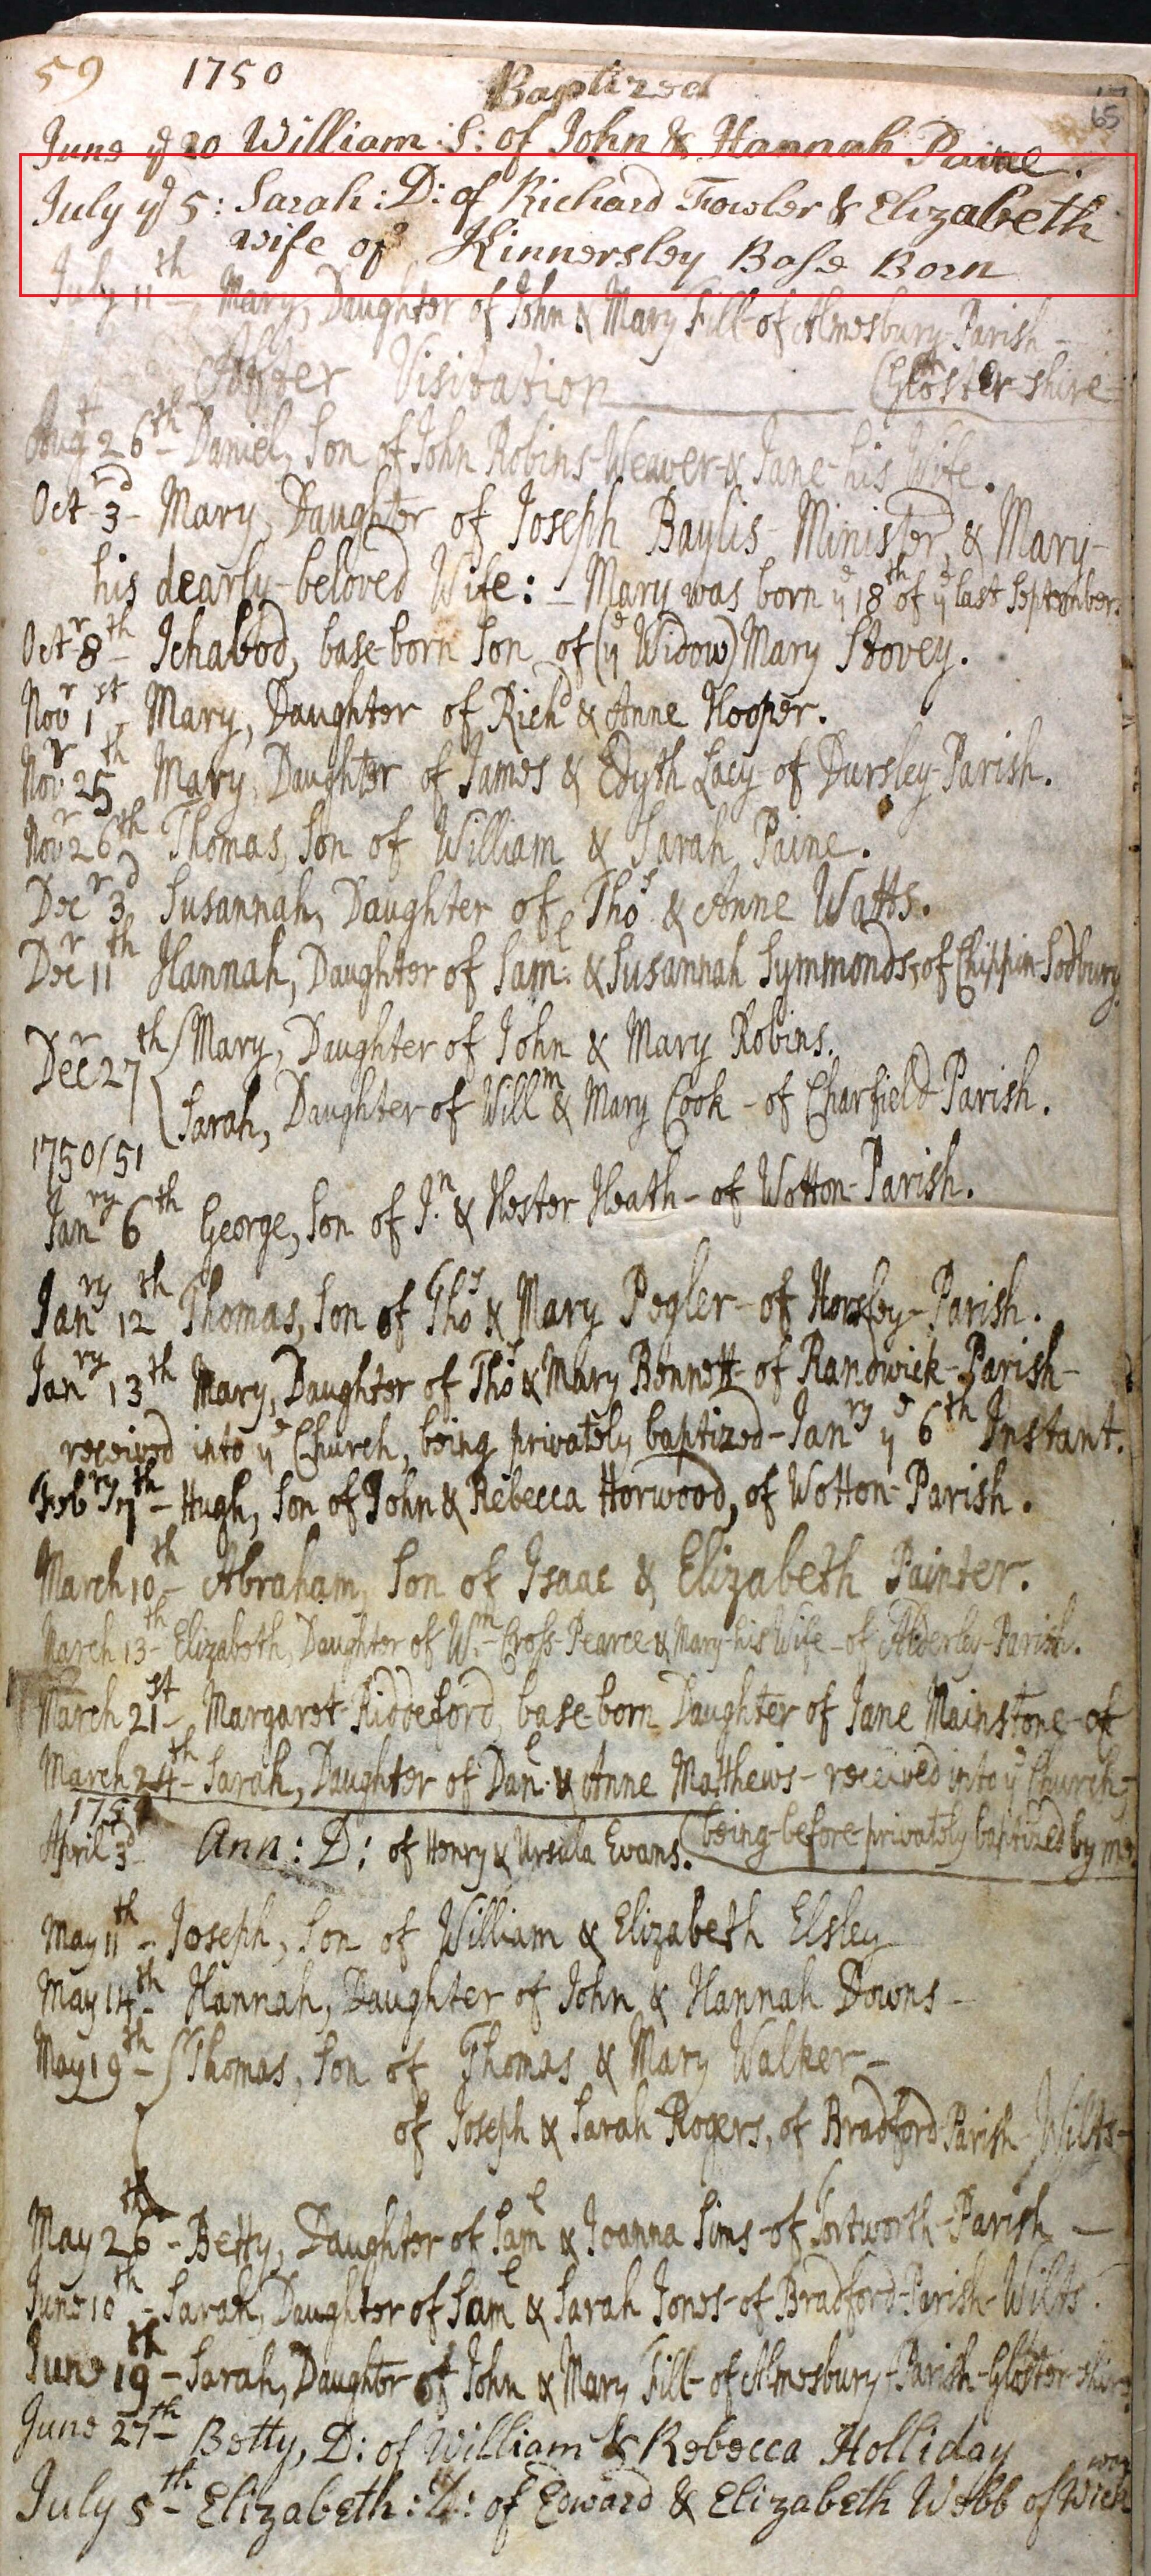 59 1750 Baptized
65
June ye 20 William: S: of John & Hannah Paine.
July ye 5: Sarah: D: of Richard Fowler & Elizabeth
wife of Kinnersley Base Born
July 11th - Mary, Daughter of John & Mary Fill - of Almesbury-Parish -
After Visitation Gloster-shire
Augt 26th - Daniel, Son of John Robins-Weaver-& Jane-his Wife.
Octr 3d - Mary, Daughter of Joseph Baylis Minister, & Mary-
his dearly-beloved Wife: - Mary was born ye 18th of ye last September.
Octr 8th - Ichabod, base-born Son of (ye Widow) Mary Stovey.
Novr 1st - Mary, Daughter of Richd & Anne Hooper.
Novr 25th Mary, Daughter of James & Edyth Lacy-of Dursley-Parish.
Novr 26th Thomas, Son of William & Sarah Paine.
Decr 3d Susannah, Daughter of Thos & Anne Watts.
Decr 11th Hannah, Daughter of Saml & Susannah Symmonds, of Chippin-Sodbury
Decr 27th Mary, Daughter of John & Mary Robins.
Sarah, Daughter of Willm & Mary Cook - of Charfield-Parish.
1750/51
Janry 6th George, Son of Jn & Hester Heath - of Wotton-Parish.
Janry 12th Thomas, Son of Thos & Mary Pegler-of Horsley-Parish.
Janry 13th Mary, Daughter of Thos & Mary Bennett-of Randwick-Parish-
received into ye Church, being privately baptized-Janry ye 6th Instant.
Febry 7th - Hugh, Son of John & Rebecca Horwood, of Wotton-Parish.
March 10th - Abraham, Son of Isaac & Elizabeth Painter.
March 13th - Elizabeth, Daughter of Wm-Cross-Pearce & Mary-his Wife-of Alderley-Parish.
March 21st - Margaret-Riddeford, base-born Daughter of Jane Mainstone-of
March 24th - Sarah, Daughter of Danl & Anne Matthews - received into ye Church,
1751 (being-before-privately baptized by me.
April 3d Ann: D: of Henry & Ursula Evans.
May 11th - Joseph, Son of William & Elizabeth Elsley
May 14th - Hannah, Daughter of John & Hannah Downs -
May 19th - Thomas, Son of Thomas & Mary Walker -
of Joseph & Sarah Rogers, of Bradford Parish Wilts-
May 26th - Betty, Daughter of Saml & Joanna Sims-of Tortworth-Parish -
June 10th - Sarah, Daughter of Saml & Sarah Jones-of Bradford-Parish-Wilts.
June 19th - Sarah, Daughter of John & Mary Fill-of Almesbury-Parish-Gloster-shire
June 27th - Betty, D: of William & Rebecca Holliday
July 5th - Elizabeth: D: of Edward & Elizabeth Webb of Wick